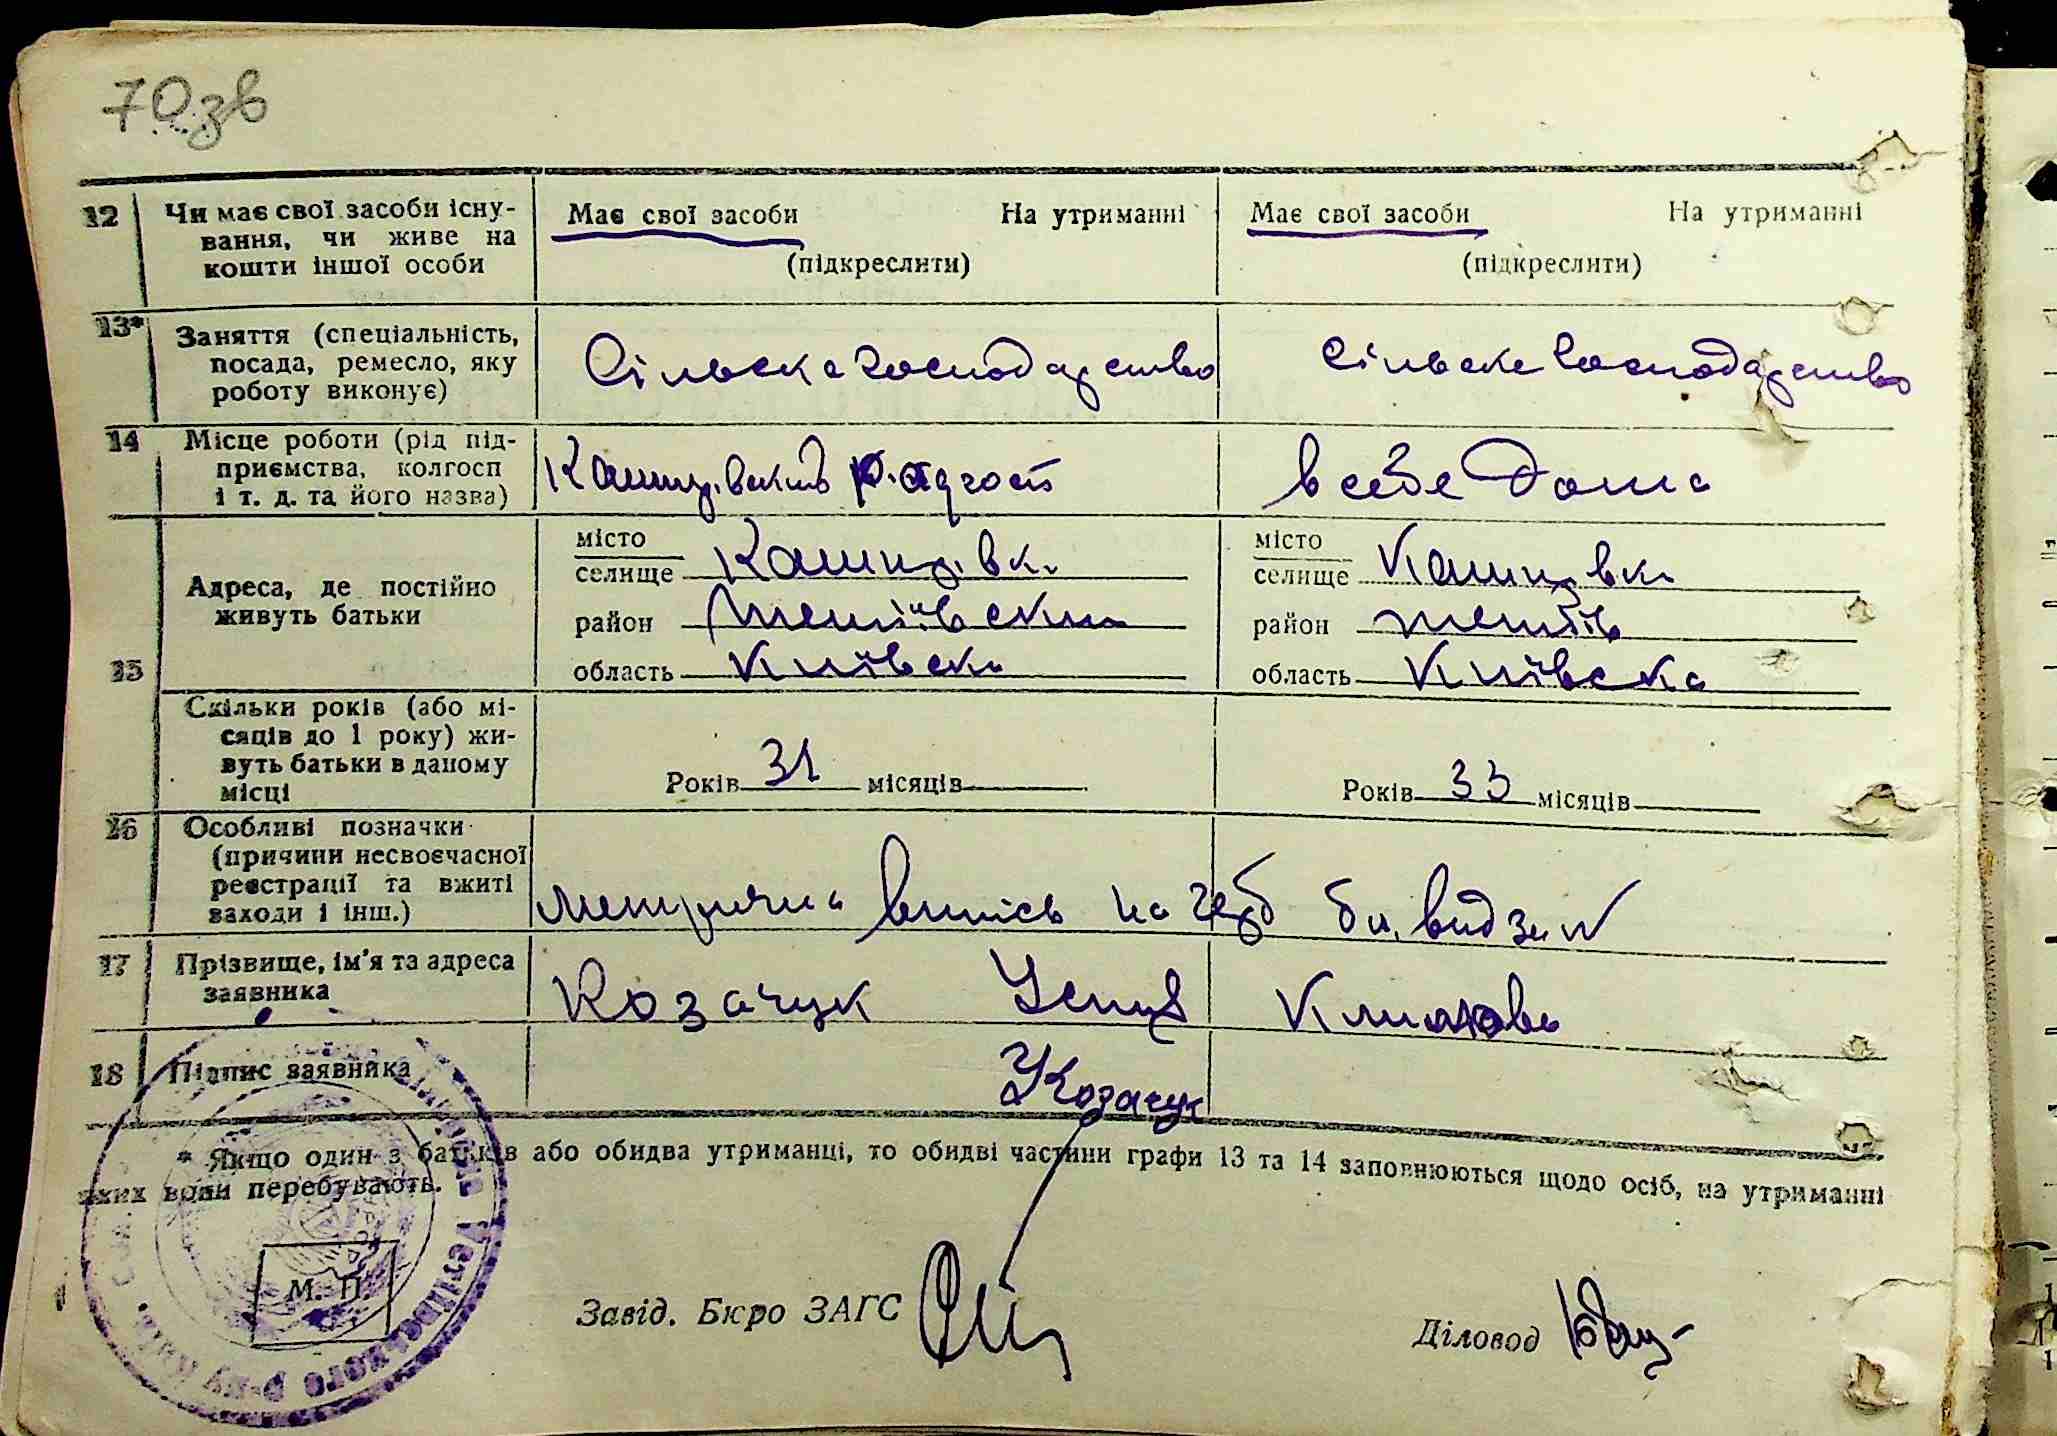 70зв
12 Чи має свої засоби існу- Має свої засоби На утриманні Має свої засоби На утриманні
вання, чи живе на
кошти іншої особи (підкреслити) (підкреслити)
13* Заняття (спеціальність, Сільске господарство Сільске господарство
посада, ремесло, яку
роботу виконує)
14 Місце роботи (рід під-
приємства, колгосп в себе дома
і т. д. та його назва)
місто місто
селище Кашперівка селище Кашперівка
15 Адреса, де постійно
живуть батьки
район Тетіївский район Тетіїв
область Київска область Київска
Скільки років (або мі-
сяців до 1 року) жи-
вуть батьки в даному
місці
Років 31 місяців Років 33 місяців
16 Особливі позначки
(причини несвоєчасної
реєстрації та вжиті
заходи і інш.) випісь на
17 Прізвище, ім'я та адреса
заявника Козачук
18 Підпис заявника Козачук
* Якщо один з батьків або обидва утриманці, то обидві частини графи 13 та 14 заповнюються щодо осіб, на утриманні
яких вони перебувають.
М. П.
Завід. Бюро ЗАГС
Діловод
Тетіївського р-ну Київ.